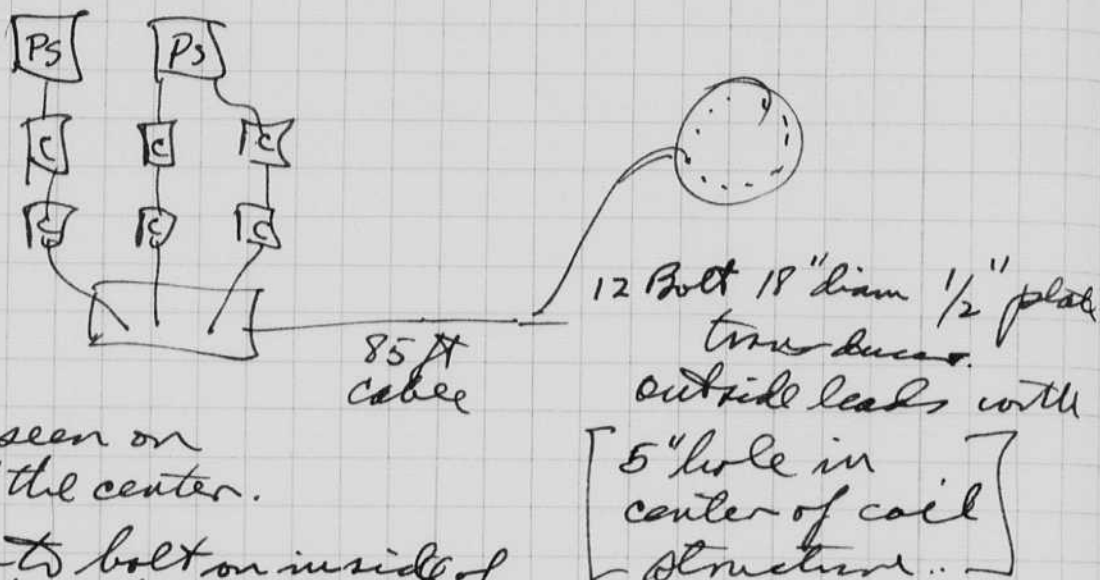 PS PS
C C C
C C C
85 ft
cable
12 Bolt 18" diam 1/2" plate
transducer.
outside leads with
5" hole in
center of coil
structure..
seen on
the center.
to bolt on inside of